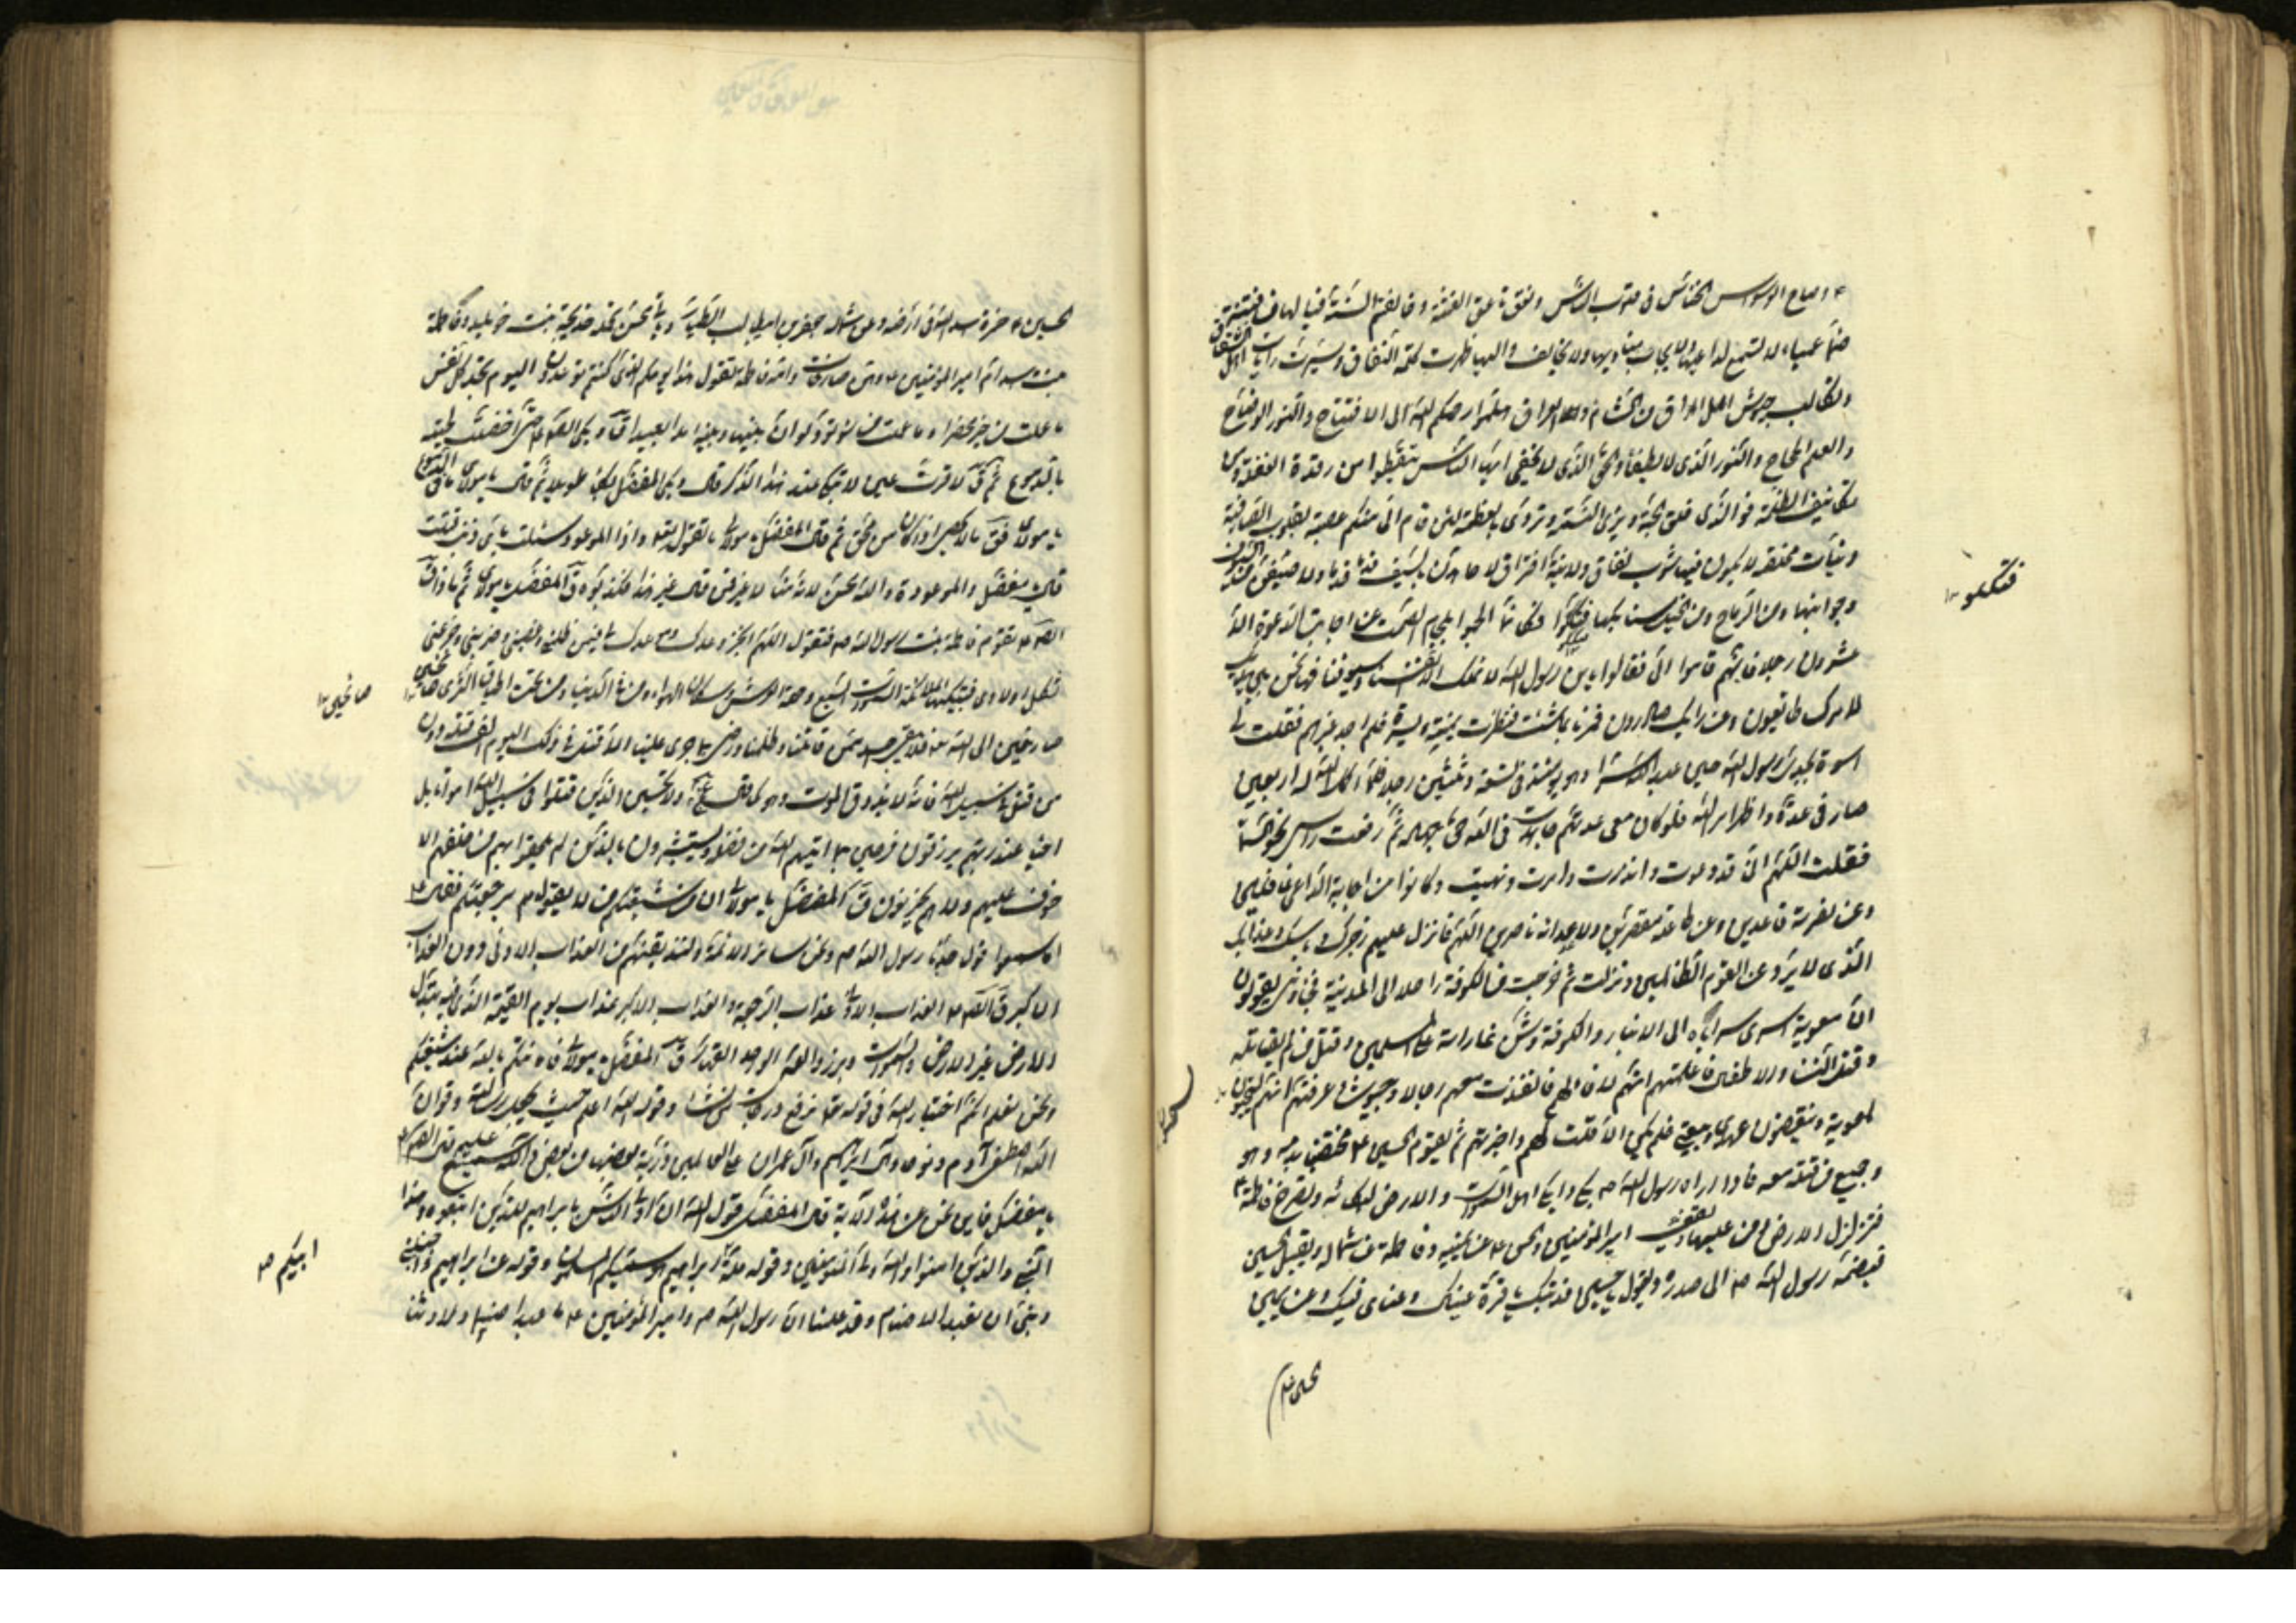 وصاح الوسواس الخناس في قلوب الناس ونعق ناعق الفتنة وخالفتم السنة فيا لها من فتنة
صماء عمياء لا تسمع لداعيها ولا يجاب مناديها ولا يخالف واليها ظهرت كلمة النفاق وسيرت رايات اهل الشقاق
وتكالبت جيوش اهل العراق من الشام والعراق هلموا رحمكم الله الى الافتتاح والنور الوضاح
والعلم الجحجاح والنور الذي لا يطفأ والحق الذي لا يخفى ايها الناس تيقظوا من رقدة الغفلة ومن
تكاثيف الظلمة فوالذي فلق الحبة وبرئ النسمة وتردى بالعظمة لئن قام الي منكم عصبة بقلوب صافية
ونيات مخلصة لا يكون فيها شوب نفاق ولا نية افتراق لاجاهدن بالسيف قدما قدما ولا ضيقن من السيوف
جوانبها ومن الرماح ومن الخيل سنابكها فكانما الجموا بلجام الصمت عن اجابة الدعوة الا
عشرون رجلا فانهم قاموا الي فقالوا يا بن رسول الله لا نملك الا انفسنا وسيوفنا فها نحن بين يديك
لامرك طائعون وعن رايك صادرون فمرنا بما شئت فنظرت يمنة ويسرة فلم ار احدا غيرهم فقلت لي
اسوة بجدي رسول الله حين عبد الله سرا وهو يومئذ في تسعة وثلثين رجلا فلما اكمل الله له اربعين
صار في عدة واظهر امر الله فلو كان معي عدتهم جاهدت في الله حق جهاده ثم رفعت راسي نحو السماء
فقلت اللهم اني قد دعوت وانذرت وامرت ونهيت وكانوا عن اجابة الداعي غافلين
وعن نصرته قاعدين وعن طاعته مقصرين ولاعدائه ناصرين اللهم فانزل عليهم رجزك وباسك وعذابك
الذي لا يرد عن القوم الظالمين ونزلت ثم خرجت من الكوفة راحلا الى المدينة فجاؤني يقولون
ان معوية اسرى سراياه الى الانبار والكوفة وشن غاراته على المسلمين وقتل من لم يقاتله
وقتل النساء والاطفال فاعلمتهم انهم لا وفاء لهم فانفذت معهم رجالا وجيوشا وعرفتهم انهم يستجيبون
لمعوية وينقضون عهدي وبيعتي فلم يكن الا ما قلت لهم واخبرتهم ثم يقوم الحسين ع مخضبا بدمه وهو
وجميع من قتل معه فاذا راه رسول الله ص بكى وابكى اهل السموات والارض لبكائه وتصرخ فاطمة ع
فتزلزل الارض ومن عليها ويقف امير المؤمنين والحسن ع عن يمينه وفاطمة عن شماله ويقبل الحسين
فيضمه رسول الله ص الى صدره ويقول يا حسين فديتك قرت عيناك وعيناي فيك وعن يمين
الحسين ع
الحسين ع حمزة اسد الله في ارضه وعن شماله جعفر بن ابي طالب الطيار وياتي محسن تحمله خديجة بنت خويلد وفاطمة
بنت اسد ام امير المؤمنين ع وهن صارخات وامه فاطمة تقول هذا يومكم الذي كنتم توعدون اليوم تجد كل نفس
ما عملت من خير محضرا وما عملت من سوء تود لو ان بينها وبينه امدا بعيدا قال وبكى الصادق ع حتى اخضلت لحيته
بالدموع ثم قال لا قرت عين لا تبكي عند هذا الذكر قال وبكى المفضل بكاء طويلا ثم قال يا مولاي ما في الدموع
يا مولاي فقال ما لا يحصى اذا كان من محق ثم قال المفضل يا مولاي ما تقول في قوله واذا الموءودة سئلت باي ذنب قتلت
قال يا مفضل والموءودة والله محسن لانه منا لا غير فمن قال غير هذا فكذبوه قال المفضل يا مولاي ثم ماذا قال
الصادق ع تقوم فاطمة بنت رسول الله ص فتقول اللهم انجز وعدك وموعدك لي فيمن ظلمني وغصبني وضربني وجزعني
بكل اولادي فتبكيها ملائكة السموات السبع وحملة العرش وسكان الهواء ومن في الدنيا ومن تحت اطباق الثرى صائحين
صارخين الى الله ع فلا يبقى احد ممن قاتلنا وظلمنا ورضي بما جرى علينا الا قتل في ذلك اليوم الف قتلة دون
من قتل في سبيل الله فانه لا يذوق الموت وهو كما قال الله ع ولا تحسبن الذين قتلوا في سبيل الله امواتا بل
احياء عند ربهم يرزقون فرحين بما اتيهم الله من فضله ويستبشرون بالذين لم يلحقوا بهم من خلفهم الا
خوف عليهم ولا هم يحزنون قال المفضل يا مولاي ان من شيعتكم من لا يقول برجعتكم فقال ع
اما سمعوا قول جدنا رسول الله ص ونحن سائر الائمة ولنذيقنهم من العذاب الادنى دون العذاب
الاكبر قال الصادق ع العذاب الادنى عذاب الرجعة والعذاب الاكبر عذاب يوم القيمة الذي فيه تبدل
الارض غير الارض والسموات وبرزوا لله الواحد القهار قال المفضل يا مولاي فامامتكم ثابتة عند شيعتكم
ونحن نعلم انكم اختيار الله في قوله تعالى نرفع درجات من نشاء وقوله الله اعلم حيث يجعل رسالته وقوله ان
الله اصطفى آدم ونوحا وآل ابراهيم وآل عمران على العالمين ذرية بعضها من بعض والله سميع عليم قال الصادق ع
يا مفضل فاين نحن عن هذه الآية قال المفضل قول الله ان اولى الناس بابراهيم للذين اتبعوه وهذا
النبي والذين امنوا والله ولي المؤمنين وقوله ملة ابراهيم هو سميكم المسلمين وقوله عن ابراهيم واجنبني
وبني ان نعبد الاصنام وقد علمنا ان رسول الله ص وامير المؤمنين ع ما عبدا صنما ولا وثنا
صائحين
ابيكم ص